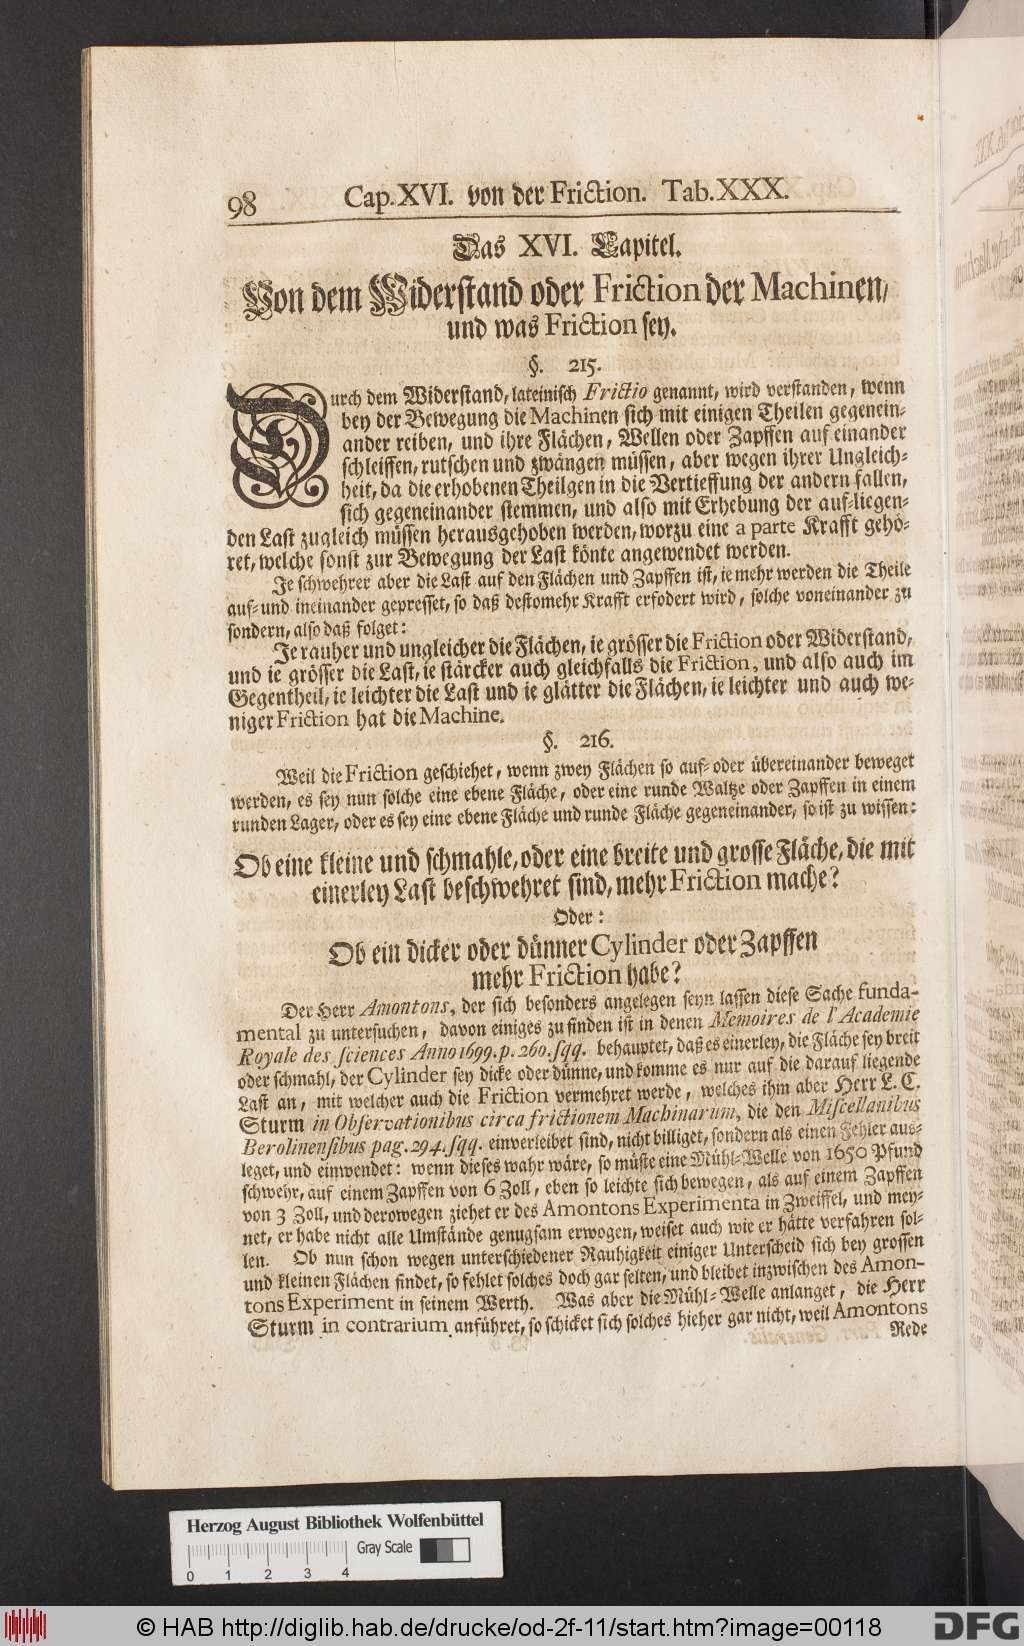 98 Cap. XVI. von der Friction. Tab. XXX.
Das XVI. Capitel.
Von dem Widerstand oder Friction der Machinen,
und was Friction sey.
§. 215.
Durch dem Widerstand, lateinisch Frictio genannt, wird verstanden, wenn
bey der Bewegung die Machinen sich mit einigen Theilen gegenein-
ander reiben, und ihre Flächen, Wellen oder Zapffen auf einander
schleiffen, rutschen und zwängen müssen, aber wegen ihrer Ungleich-
heit, da die erhobenen Theilgen in die Vertieffung der andern fallen,
sich gegeneinander stemmen, und also mit Erhebung der auf-liegen-
den Last zugleich müssen herausgehoben werden, worzu eine a parte Krafft gehö-
ret, welche sonst zur Bewegung der Last könte angewendet werden.
Je schwehrer aber die Last auf den Flächen und Zapffen ist, ie mehr werden die Theile
auf- und ineinander gepresset, so daß destomehr Krafft erfodert wird, solche voneinander zu
sondern, also daß folget:
Je rauher und ungleicher die Flächen, ie grösser die Friction oder Widerstand,
und ie grösser die Last, ie stärcker auch gleichfalls die Friction, und also auch im
Gegentheil, ie leichter die Last und ie glätter die Flächen, ie leichter und auch we-
niger Friction hat die Machine.
§. 216.
Weil die Friction geschiehet, wenn zwey Flächen so auf- oder übereinander beweget
werden, es sey nun solche eine ebene Fläche, oder eine runde Waltze oder Zapffen in einem
runden Lager, oder es sey eine ebene Fläche und runde Fläche gegeneinander, so ist zu wissen:
Ob eine kleine und schmahle, oder eine breite und grosse Fläche, die mit
einerley Last beschwehret sind, mehr Friction mache?
Oder:
Ob ein dicker oder dünner Cylinder oder Zapffen
mehr Friction habe?
Der Herr Amontons, der sich besonders angelegen seyn lassen diese Sache funda-
mental zu untersuchen, davon einiges zu finden ist in denen Memoires de l'Academie
Royale des sciences Anno 1699. p. 260. sqq. behauptet, daß es einerley, die Fläche sey breit
oder schmahl, der Cylinder sey dicke oder dünne, und komme es nur auf die darauf liegende
Last an, mit welcher auch die Friction vermehret werde, welches ihm aber Herr L. C.
Sturm in Observationibus circa frictionem Machinarum, die den Miscellanibus
Berolinensibus pag. 294. sqq. einverleibet sind, nicht billiget, sondern als einen Fehler aus-
leget, und einwendet: wenn dieses wahr wäre, so müste eine Mühl-Welle von 1650 Pfund
schwehr, auf einem Zapffen von 6 Zoll, eben so leichte sich bewegen, als auf einem Zapffen
von 3 Zoll, und derowegen ziehet er des Amontons Experimenta in Zweiffel, und mey-
net, er habe nicht alle Umstände genugsam erwogen, weiset auch wie er hätte verfahren sol-
len. Ob nun schon wegen unterschiedener Rauhigkeit einiger Unterscheid sich bey grossen
und kleinen Flächen findet, so fehlet solches doch gar selten, und bleibet inzwischen des Amon-
tons Experiment in seinem Werth. Was aber die Mühl-Welle anlanget, die Herr
Sturm in contrarium anführet, so schicket sich solches hieher gar nicht, weil Amontons
Rede
Herzog August Bibliothek Wolfenbüttel
0 1 2 3 4 Gray Scale
© HAB http://diglib.hab.de/drucke/od-2f-11/start.htm?image=00118
DFG